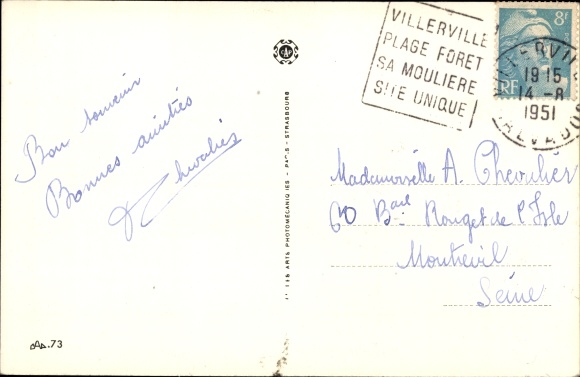 VILLERVILLE
PLAGE FORET
SA MOULIERE
SITE UNIQUE
8f
RF
VILLERVILLE
19 15
14 -8
1951
CALVADOS
CAP
Bon souvenir
Bonnes amitiés
A Chevalier
Mademoiselle A. Chevalier
60 Bard Rouget de l'Isle
Montreuil
Seine
LES ARTS PHOTOMÉCANIQUES - PARIS - STRASBOURG
CAP.73